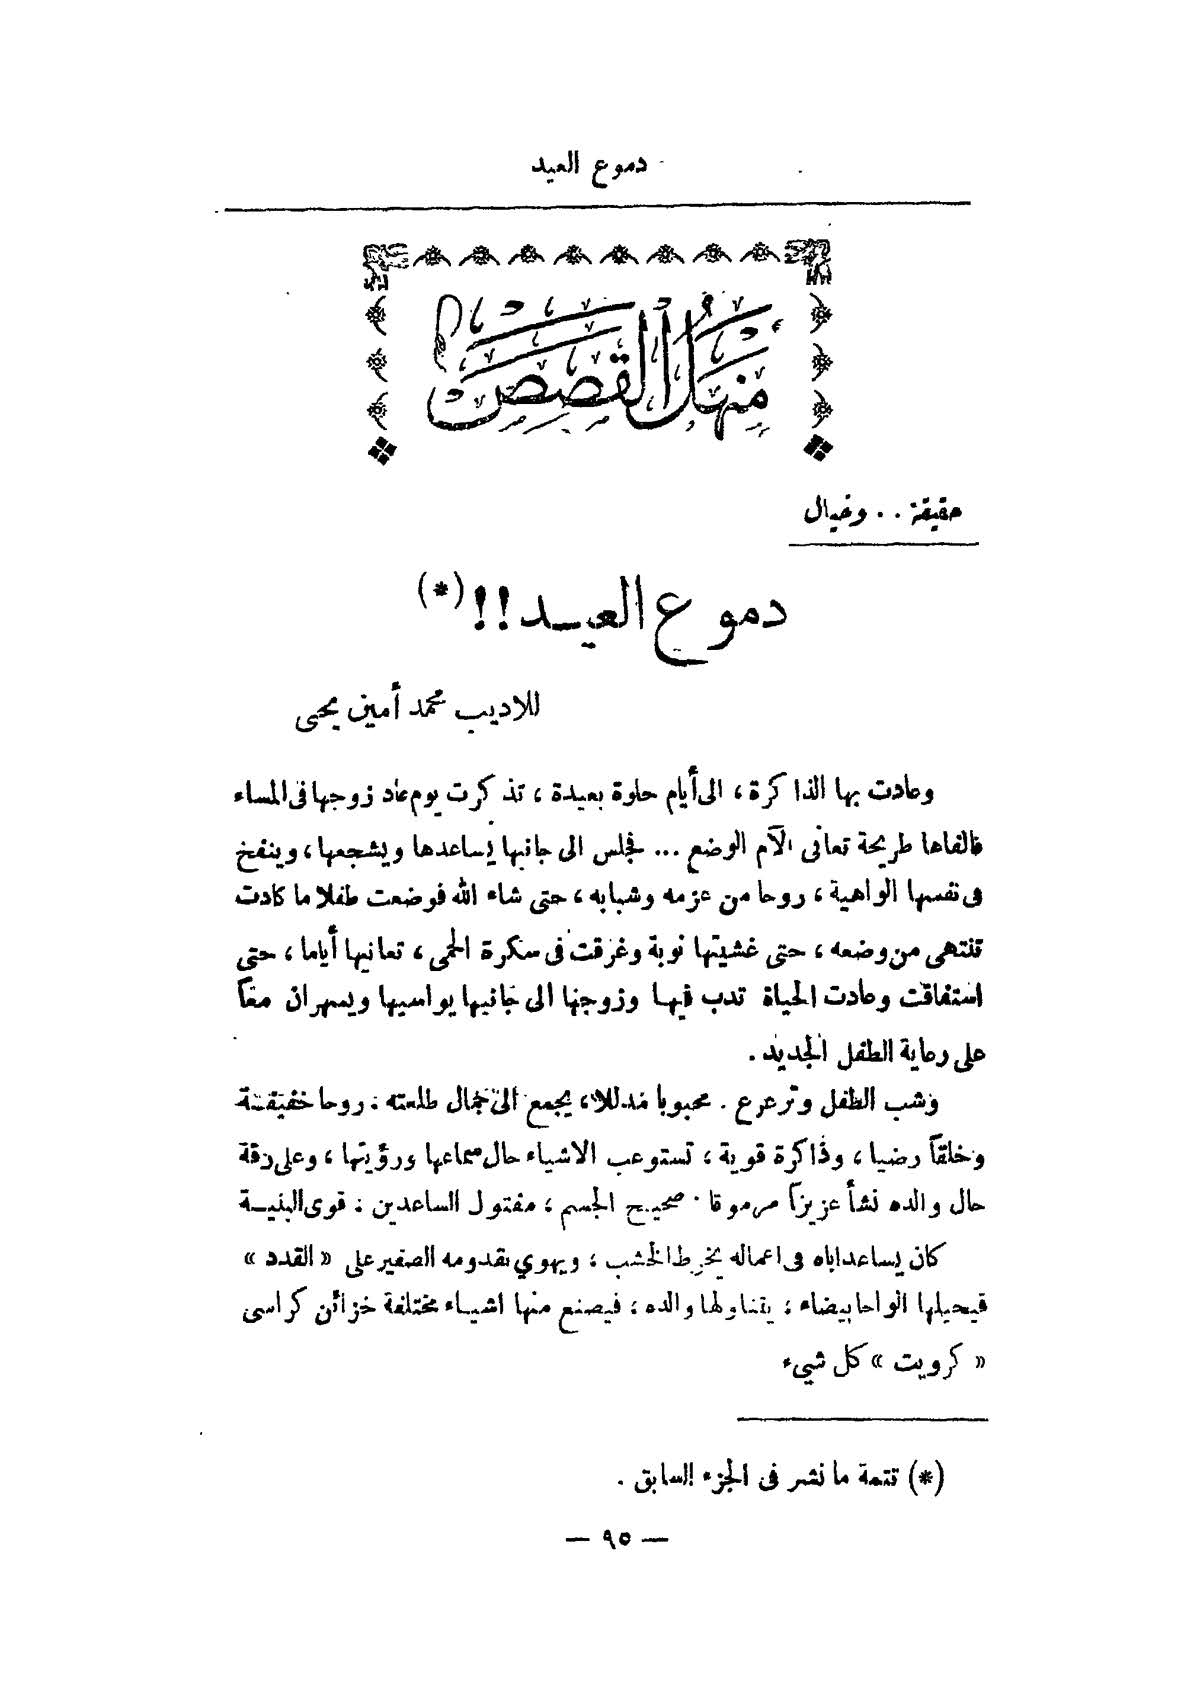 دموع العيد
منهل القصص
حقيقة . . وخيال
دموع العيـد !! (*)
للاديب محمد أمين يحيى
وعادت بها الذاكرة ، الى أيام حلوة بعيدة ، تذكرت يوم عاد زوجها فى المساء
فالفاها طريحة تعانى آلام الوضع ... فجلس الى جانبها يساعدها ويشجعها ، وينفخ
فى نفسها الواهية ، روحا من عزمه وشبابه ، حتى شاء الله فوضعت طفلا ما كادت
تنتهى من وضعه ، حتى غشيتها نوبة وغرقت فى سكرة الحمى ، تعانيها أياما ، حتى
استفاقت وعادت الحياة تدب فيها وزوجها الى جانبها يواسيها ويسهران معاً
على رعاية الطفل الجديد .
وشب الطفل وترعرع . محبوبا مدللا ، يجمع الى جمال طلعته . روحا خفيفة
وخلقاً رضيا ، وذاكرة قوية ، تستوعب الاشياء حال سماعها ورؤيتها ، وعلى رقة
حال والده نشأ عزيزاً مرموقا . صحيح الجسم ، مفتول الساعدين . قوى البنيـة
كان يساعد اباه فى اعماله يخرط الخشب ، ويهوي بقدومه الصغير على « القدد »
فيحيلها الواحا بيضاء ، يتناولها والده ، فيصنع منها اشيـاء مختلفة خزائن كراسى
« كرويت » كل شيء
(*) تتمة ما نشر فى الجزء السابق .
— ٩٥ —